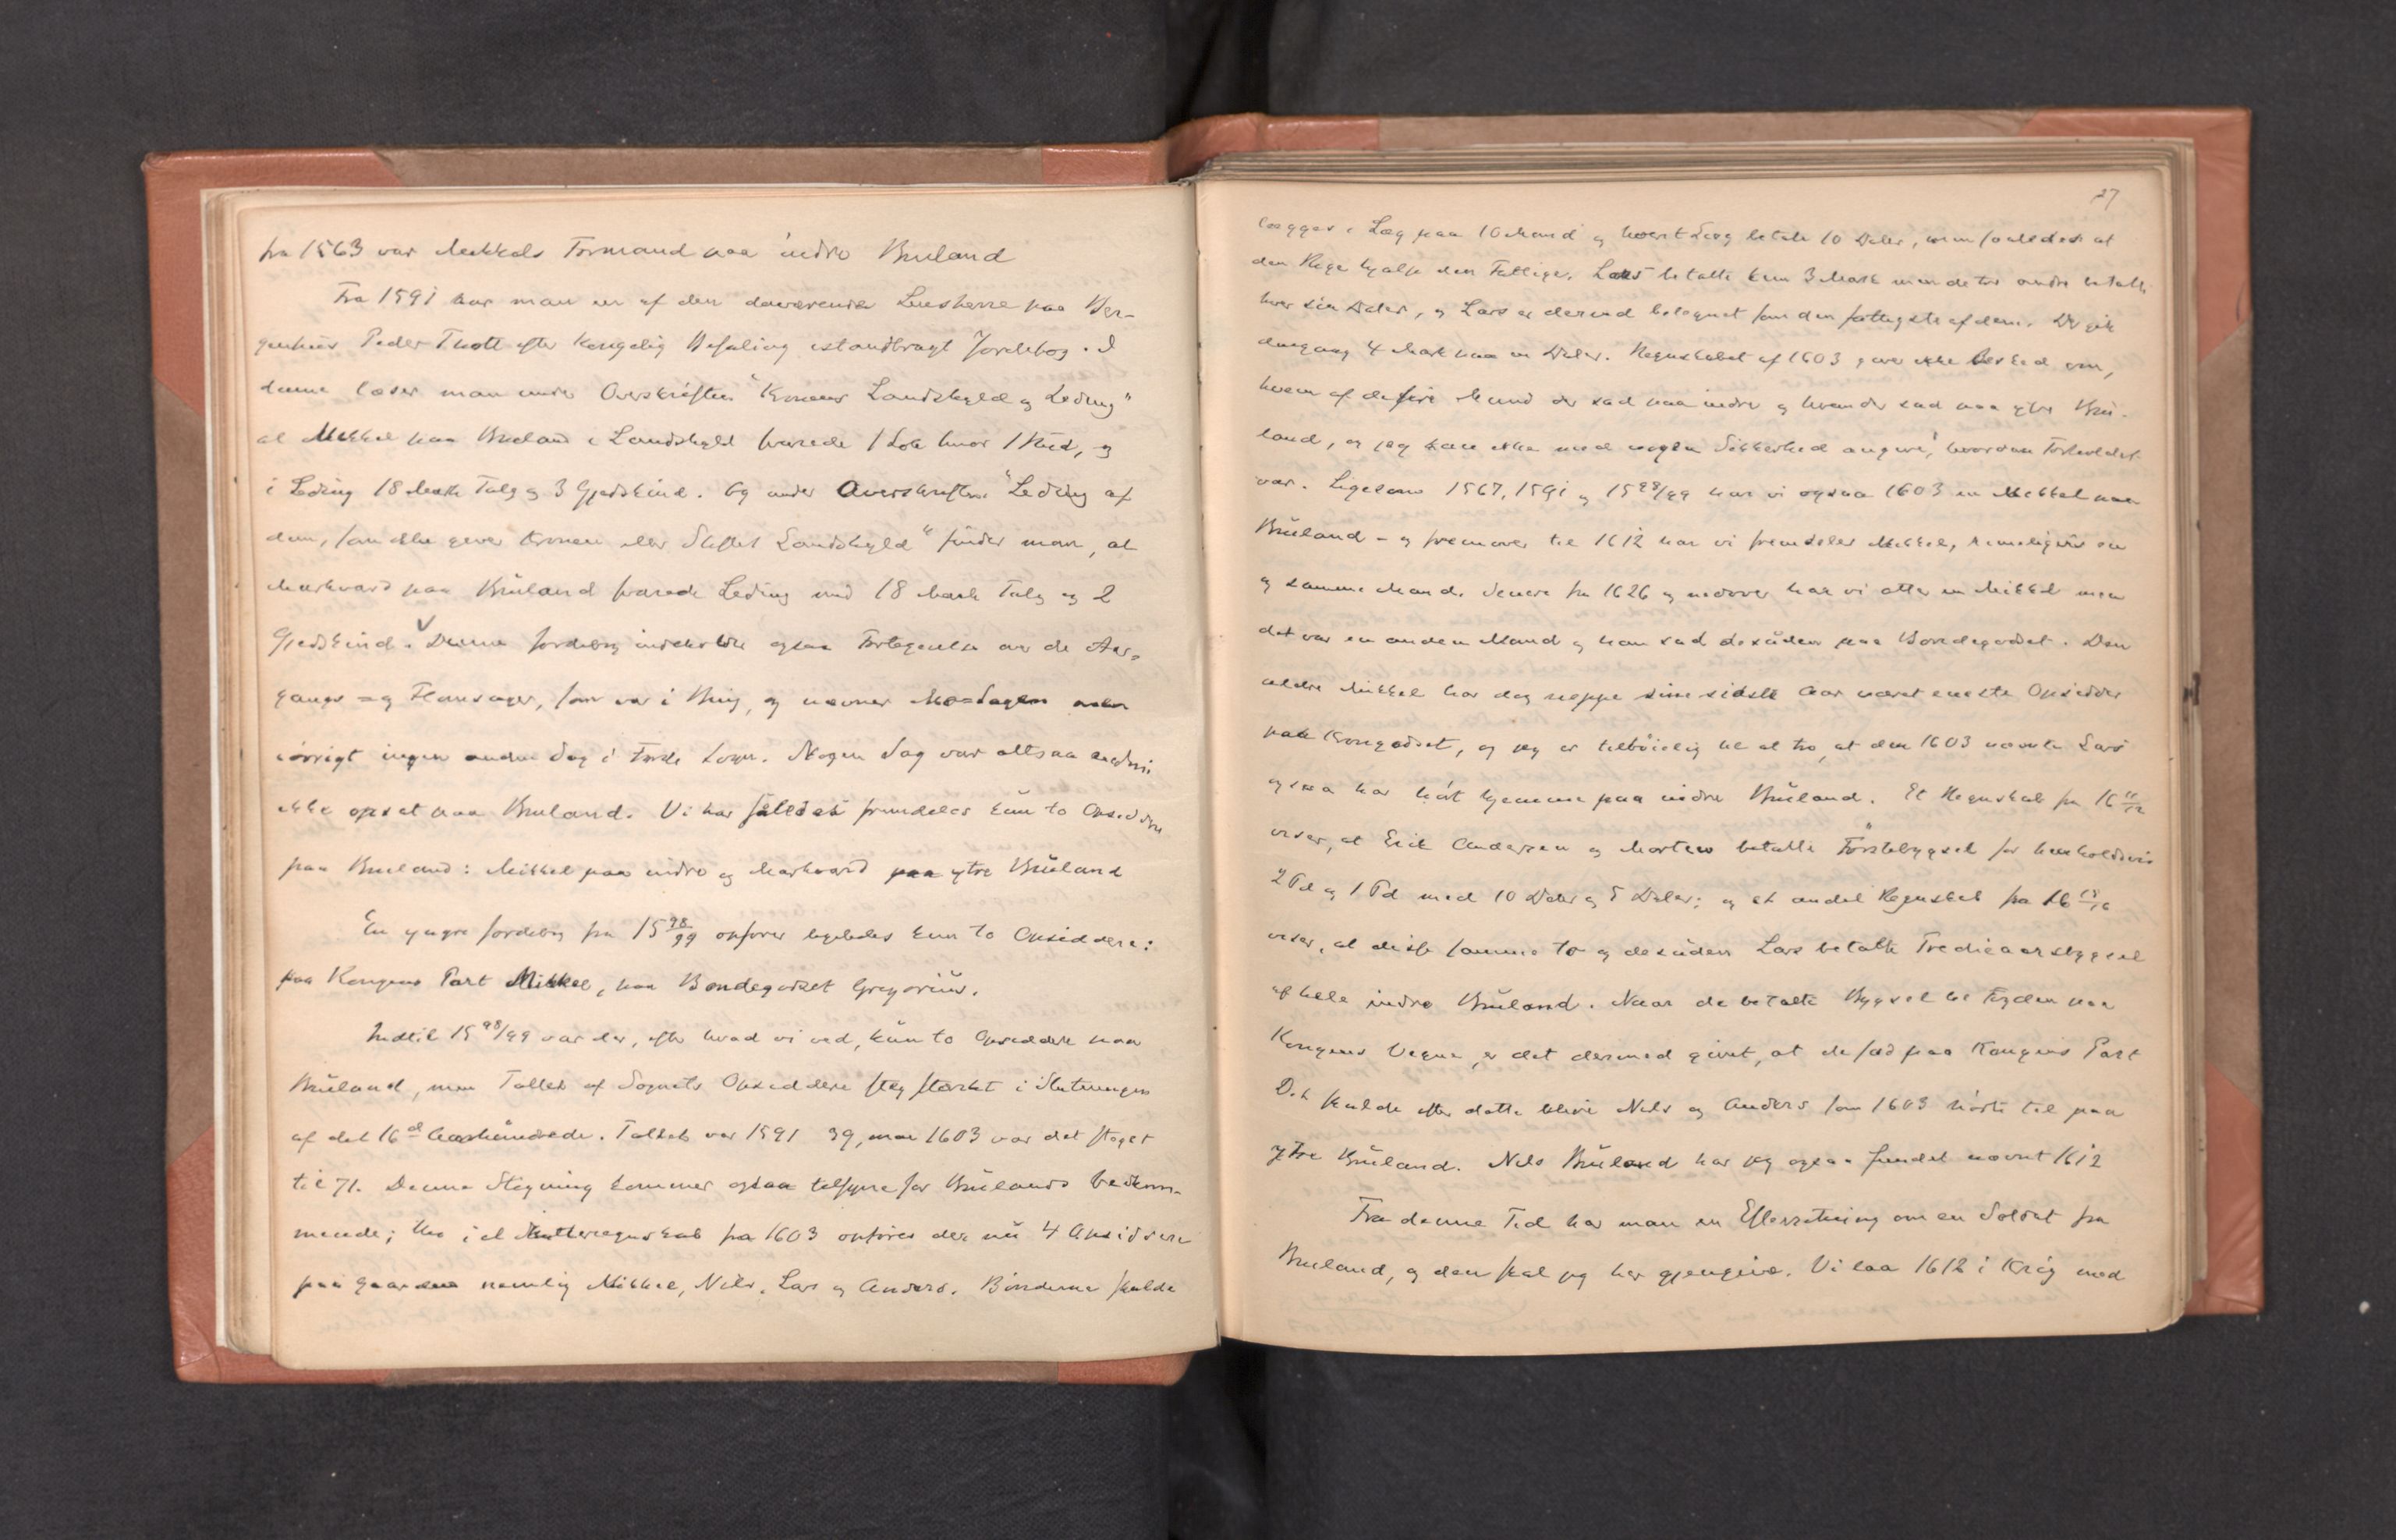 fra 1563 var Mikkels Formand paa indre Bruland
Fra 1591 har man en af den daværende Lensherre paa Ber-
genhus Peder Thott efter kongelig Befaling istandbragt Jordebog. I
denne læser man under Overskriften "Kronens Landskyld og Leding"
at Mikkel paa Bruland i Landskyld svarede 1 Løb Smør 1 Hud, og
i Leding 18 Mark Talg og 3 Gjedskind. Og under Overskriften "Leding af
dem, som ikke giver Kronen eller Stiftet Landskyld" finder man, at
Markvard paa Bruland svarede Leding med 18 Mark Talg og 2
Gjedskind. Denne Jordebog indeholder ogsaa Fortegnelse over de Aar-
gangs- og Flomsager, som var i Brug, og nævner Mo-Sagen men
iørrigt ingen anden Sag i Førde Sogn. Nogen Sag var altsaa endnu
ikke opsat paa Bruland. Vi har saaledes fremdeles kun to Opsiddere
paa Bruland: Mikkel paa indre og Markvard paa ytre Bruland
En yngre Jordebog fra 1598/99 opfører ligeledes kun to Opsiddere:
paa Kongens Part Mikkel, paa Bondegodset Gregorius.
Indtil 1598/99 var der, efter hvad vi ved, kun to Opsiddere paa
Bruland, men Tallet af Sognets Opsiddere steg stærkt i Slutningen
af det 16de Aarhundrede. Tallet var 1591 39, men 1603 var det steget
til 71. Denne Stigning kommer ogsaa tilsyne for Brulands Vedkom-
mende; thi i et Skatteregnskab fra 1603 opføres der nu 4 Opsiddere
paa Gaarden nemlig Mikkel, Nils, Lars og Anders. Bønderne skulde
27
lægges i Læg paa 10 Mand og hvert Læg betale 10 Daler, men saaledes at
den Rige hjalp den Fattige. Lars betalte kun 3 Mark men de tre andre betalte
hver sin Daler, og Lars er derved betegnet som den fattigste af dem. Der gik
dengang 4 Mark paa en Daler. Regnskabet af 1603 giver ikke Besked om,
hvem af de fire Mænd der sad paa indre og hvem der sad paa ytre Bru-
land, og jeg kan ikke med nogen Sikkerhed angive, hvordan Forholdet
var. Ligesom 1567, 1591 og 1598/99 har vi ogsaa 1603 en Mikkel paa
Bruland - og fremover til 1612 har vi fremdeles Mikkel, rimeligvis en
og samme Mand. Senere fra 1626 og nedover har vi atter en Mikkel men
det var en anden Mand og han sad desuden paa Bondegodset. Den
ældre Mikkel har dog neppe sine sidste Aar været eneste Opsidder
paa Krongodset, og jeg er tilbøielig til at tro, at den 1603 nævnte Lars
ogsaa har hørt hjemme paa indre Bruland. Et Regnskab fra 1611/12
viser, at Erik Andersen og Morten betalte Førstebygsel for henholdsvis
2 Pd og 1 Pd med 10 Daler og 5 Daler; og et andet Regnskab fra 1615/16
viser, at disse samme to og desuden Lars betalte Trediaarsbygsel
af hele indre Bruland. Naar de betalte Bygsel til Fogden paa
Kongens Vegne, er det dermed givet, at de sad paa Kongens Part
Det skulde efter dette blive Nils og Anders som 1603 hørte til paa
ytre Bruland. Nils Bruland har jeg ogsaa fundet nævnt 1612
Fra denne Tid har man en Efterretning om en Soldat fra
Bruland, og den skal jeg her gjengive. Vi laa 1612 i Krig med